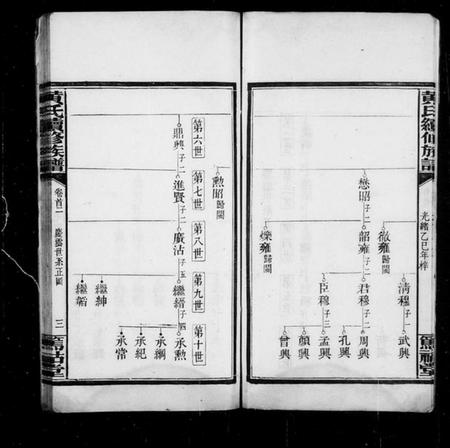 黃氏續修族譜
光緒乙巳年梓
懋昭 子二
徽雍 歸閩
韶雍 子二
燦雍 歸閩
清穆 子一
君穆 子二
臣穆 子三
武興
周興
孔興
孟興
顏興
曾興
勲昭 歸閩
第六世
第七世
第八世
第九世
第十世
鼎興 子二
進賢 子二
廣沾 子五
繼縉 子四
繼紳
繼韜
承勲
承綱
承紀
承常
黃氏續修族譜
卷首二
世系正圖
三